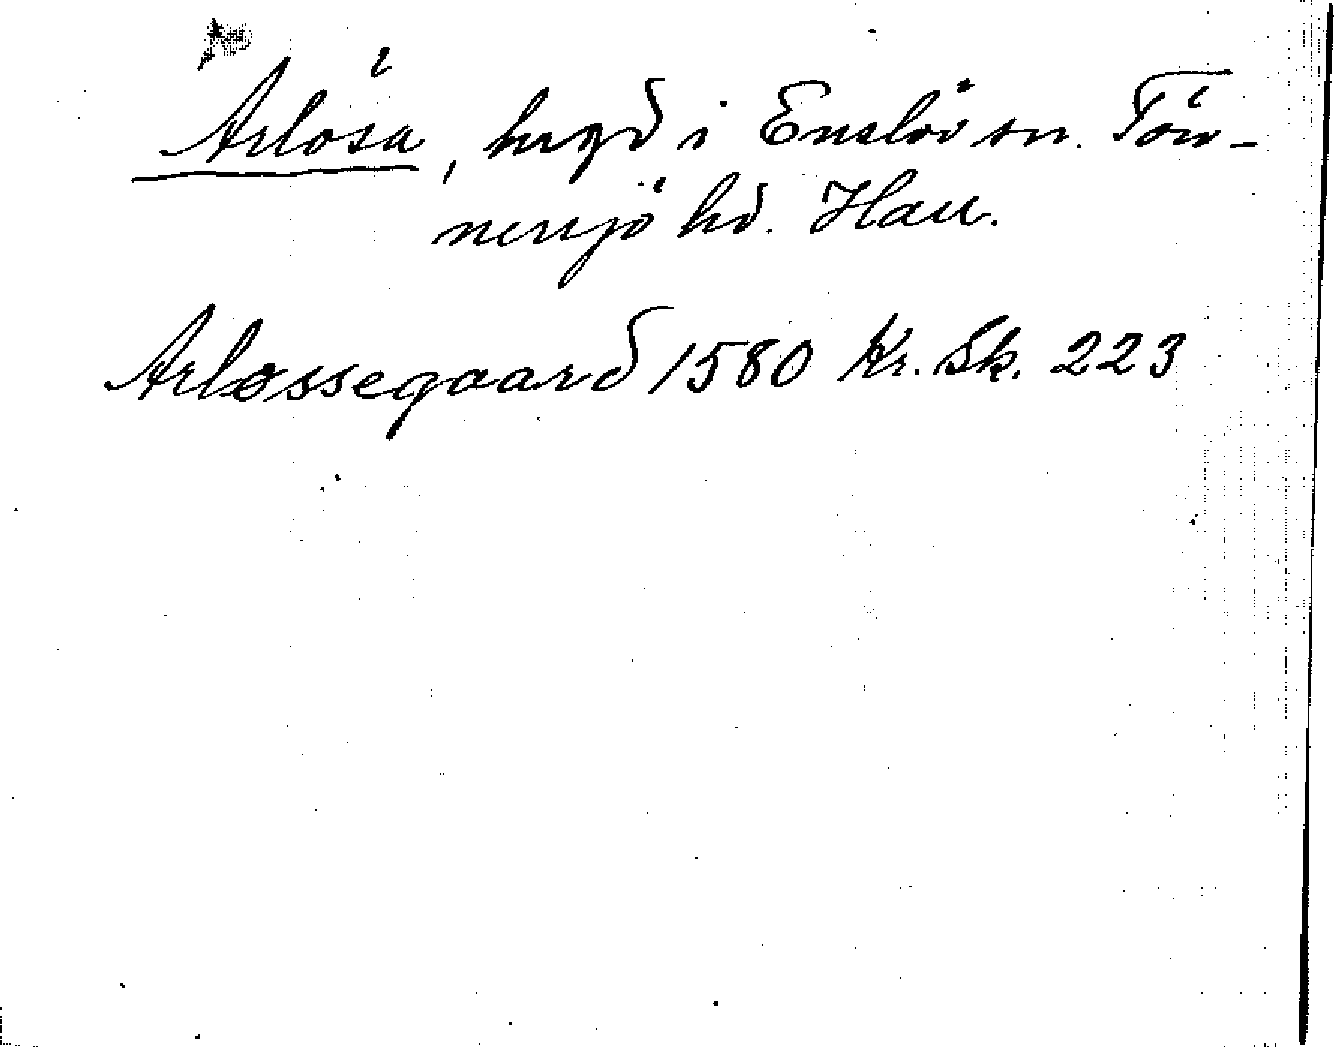 Arlösa, bygd i Enslöv sn. Tön-
nersjö hd. Hall.
Arløssegaard 1580 Kr. Sk. 223